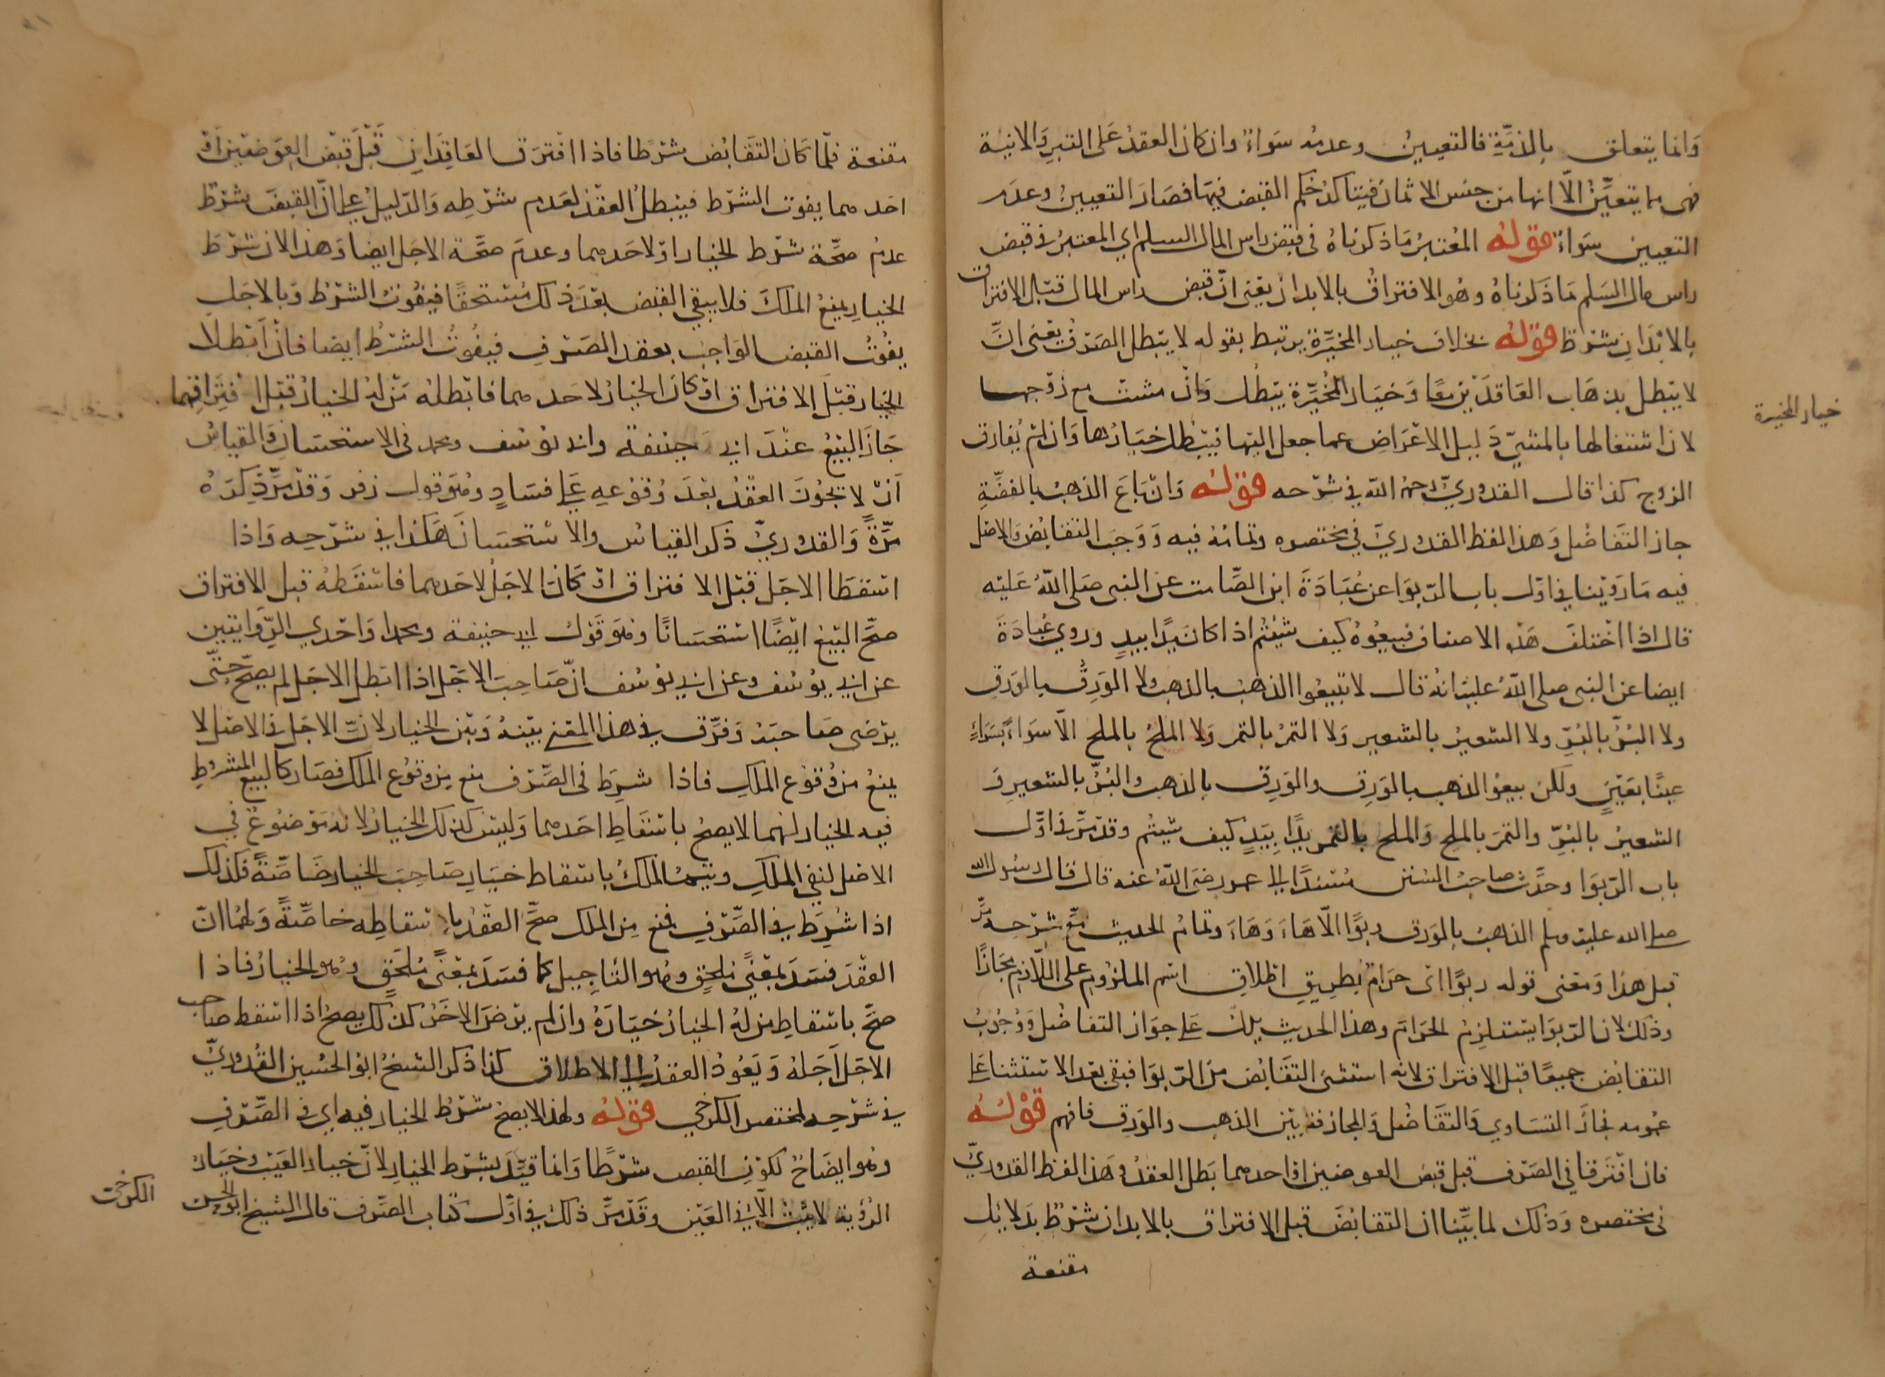 وانما يتعلق بالذمة فالتعيين وعدمه سواء وان كان العقد على التبر والانية
فهى مما يتعين الا انها من جنس الاثمان فيتاكد حكم القبض فيها فصار التعيين وعدم
التعيين سواء قوله المعتبر ما ذكرناه فى قبض راس المال السلم اي المعتبر فى قبض
راس مال السلم ما ذكرناه وهو الافتراق بالابدان يعنى ان قبض راس المال قبل الافتراق
بالابدان شرط قوله بخلاف خيار المخيرة يرتبط بقوله لا يبطل الصرف يعنى ان
لا يبطل بذهاب العاقدين معا وخيار المخيرة يبطل وان مشت مع زوجها
لان اشتغالها بالمشي دليل الاعراض عما جعل اليها فيبطل خيارها وان لم يفارق
الزوج كذا قال القدوري رحمه الله في شرحه قوله وان باع الذهب بالفضة
جاز التفاضل وهذا لفظ القدوري في مختصره وتمامه فيه ووجب التقابض والاصل
فيه ما روينا في اول باب الربوا عن عبادة ابن الصامت عن النبى صلى الله عليه
قال اذا اختلف هذه الاصناف فبيعوه كيف شئتم اذا كان يدا بيد وروي عبادة
ايضا عن النبى صلى الله عليه انه قال لا تبيعوا الذهب بالذهب ولا الورق بالورق
ولا البر بالبر ولا الشعير بالشعير ولا التمر بالتمر ولا الملح بالملح الا سواء بسواء
عينا بعين ولكن بيعوا الذهب بالورق والورق بالذهب والبر بالشعير و
الشعير بالبر والتمر بالملح والملح بالتمر يدا بيد كيف شيتم وقد مر فى اول
باب الربوا وحدث صاحب السنن مسندا الى عمر رضى الله عنه قال قال رسول الله
صلى الله عليه وسلم الذهب بالورق ربوا الا هاء وهاء وتمام الحديث مع شرحه مر
قبل هذا ومعنى قوله ربوا اى حرام بطريق اطلاق اسم الملزوم على اللازم مجازا
وذلك لان الربوا يستلزم الحرام وهذا الحديث يدل على جواز التفاضل ووجوب
التقابض جميعا قبل الافتراق لانه استثنى التقابض من الربوا فبقى بعد الاستثنا على
عمومه فجاز التساوي والتفاضل والمجازفة بين الذهب والورق فافهم قوله
فان افترقا في الصرف قبل قبض العوضين او احدهما بطل العقد وهذا لفظ القدوري
فى مختصره وذلك لما بينا ان التقابض قبل الافتراق بالابدان شرط بدلايل
مقنعة
خيار المخيرة
مقنعة فلما كان التقابض شرطا فاذا افترق العاقدان قبل قبض العوضين او
احدهما يفوت الشرط فيبطل العقد لعدم شرطه والدليل على ان القبض شرط
عدم صحة شرط الخيار او لاحدهما وعدم صحة الاجل ايضا وهذا لان شرط
الخيار يمنع الملك فلا يبقى القبض بعد ذلك مستحقا فيفوت الشرط وبالاجل
يفوت القبض الواجب بعقد الصرف فيفوت الشرط ايضا فان ابطلا
الخيار قبل الافتراق او كان الخيار لاحدهما فابطله من له الخيار قبل افتراقهما
جاز البيع عند ابي حنيفة وابى يوسف ومحمد فى الاستحسان والقياس
ان لا يجوز العقد بعد وقوعه على فساد وهو قول زفر وقد مر ذكره
مرة والقدوري ذكر القياس والاستحسان هكذا في شرحه واذا
اسقطا الاجل قبل الافتراق او كان الاجل لاحدهما فاسقطه قبل الافتراق
صح البيع ايضا استحسانا وهو قول ابى حنيفة ومحمد واحدي الروايتين
عن ابى يوسف وعن ابى يوسف ان صاحب الاجل اذا ابطل الاجل لم يصح حتى
يرضى صاحبه وفرق في هذا المعنى بينه وبين الخيار لان الاجل فى الاصل لا
يمنع من وقوع الملك فاذا شرط فى الصرف منع من وقوع الملك فصار كالبيع المشروط
فيه الخيار لهما لا يصح باسقاط احدهما وليس كذلك الخيار لانه موضوع في
الاصل لنفي الملك ويتم الملك باسقاط خيار صاحب الخيار خاصة فكذلك
اذا شرط في الصرف فمنع من الملك صح العقد باسقاطه خاصة ولهما ان
العقد فسد بمعنى ملحق وهو التاجيل كما فسد بمعنى ملحق وهو الخيار فاذا
صح باسقاط من له الخيار خياره وان لم يرض الاخر كذلك يصح اذا اسقط صاحب
الاجل اجله ويعود العقد الى الاطلاق كذا ذكر الشيخ ابو الحسين القدوري
في شرحه لمختصر الكرخي قوله ولهذا لا يصح شرط الخيار فيه اي فى الصرف
وهو ايضاح لكون القبض شرطا وانما قيد بشرط الخيار لان خيار العيب وخيار
الرؤية لا يثبت الا في العين وقد مر ذلك في اول كتاب الصرف قال الشيخ ابو الحسن
الكرخي